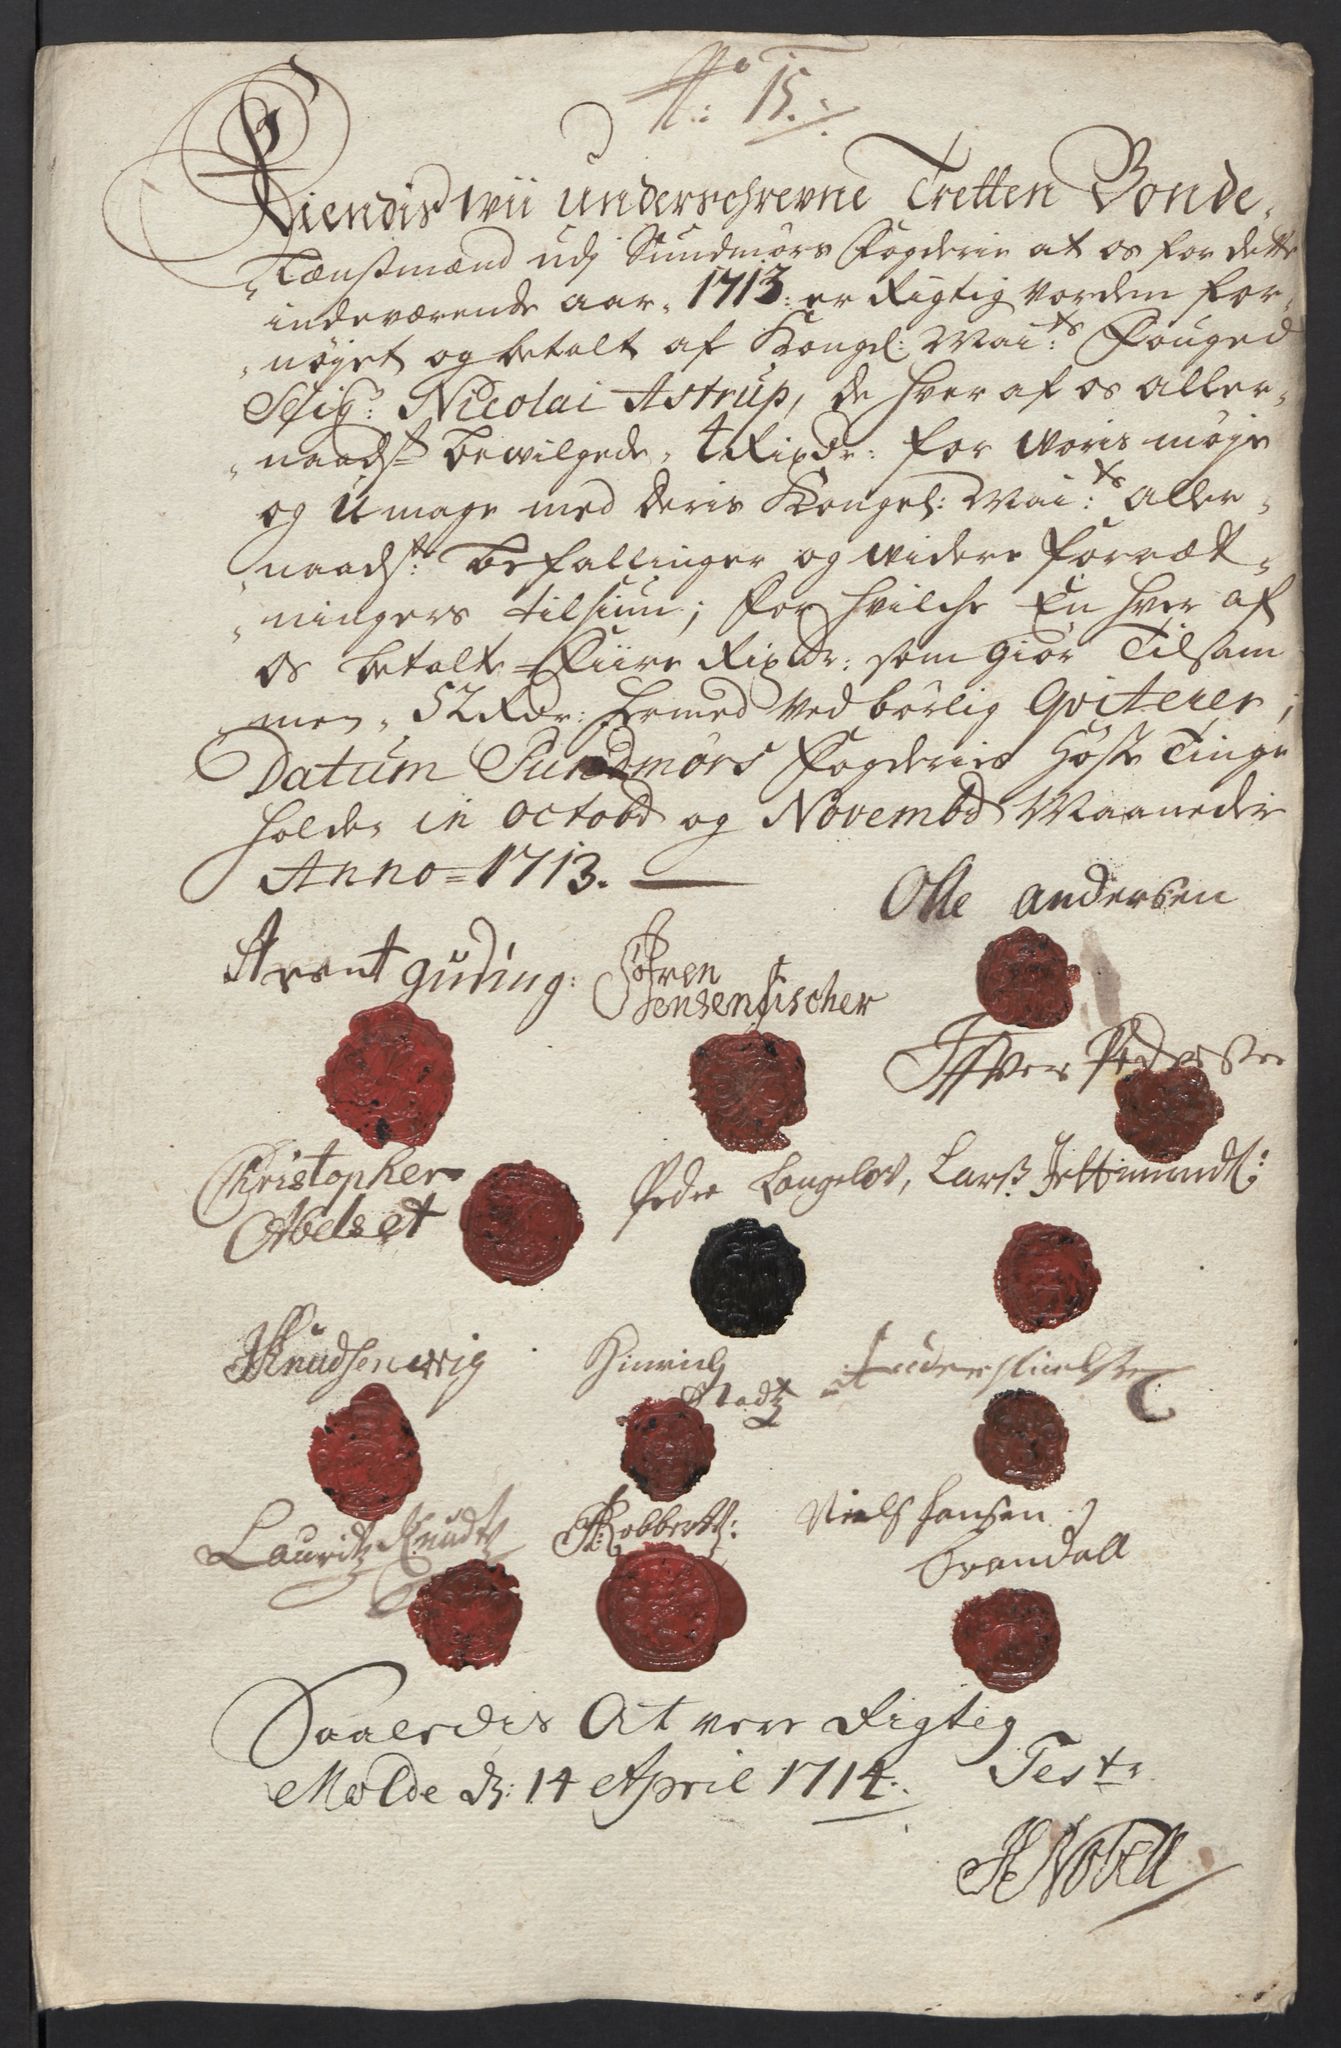 No: 15.
Kiendis wii underschrevne Tretten Bonde-
Lænsmænd udj Sundmørs Fogderie at os for dette
indeværende aar, 1713: er Rigtig vorden for-
nøyet og betalt af Kongel: Mai:ts Fouged
Sr: Nicolai Astrup, de hver af os aller-
naadst bewilgede, 4 Rixdr: for woris møje
og Umage med deris Kongel: Mai:ts aller-
naadst: befallinger og widere forræt-
ningers tilsiun; for hvilche En hver af
os betalt Fiire Rixdr: som giør Tilsam
men, 52 Rdr: hermed ved børlig Qviterer;
Datum Sundmørs Fogderies Høste Tinge
holden in Octobr og Novembr Maaneder
Anno=1713.
Olle Andersen
Arent guding:
Søfren
Jensen fischer
Iffver Pedersen
Christopher
Abelset
Peder Langeland, Lars
Knudsen wiig
Hinrich
Stadt
Lauritz Knudtz
Robbertt:
Niels Hansen
Brandall
Saaledis At vere Rigtig
Test
Molde d: 14 April 1714.
Nobell